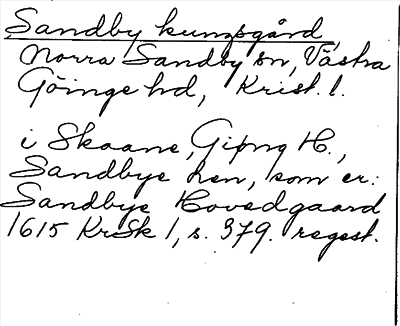 Sandby kungsgård,
Norra Sandby sn, Västra
Göinge hd, Krist. l.
i Skaane, Giøng H.,
Sandbye Len, som er:
Sandbye Hovedgaard
1615 KrSk 1, s. 379. regest.